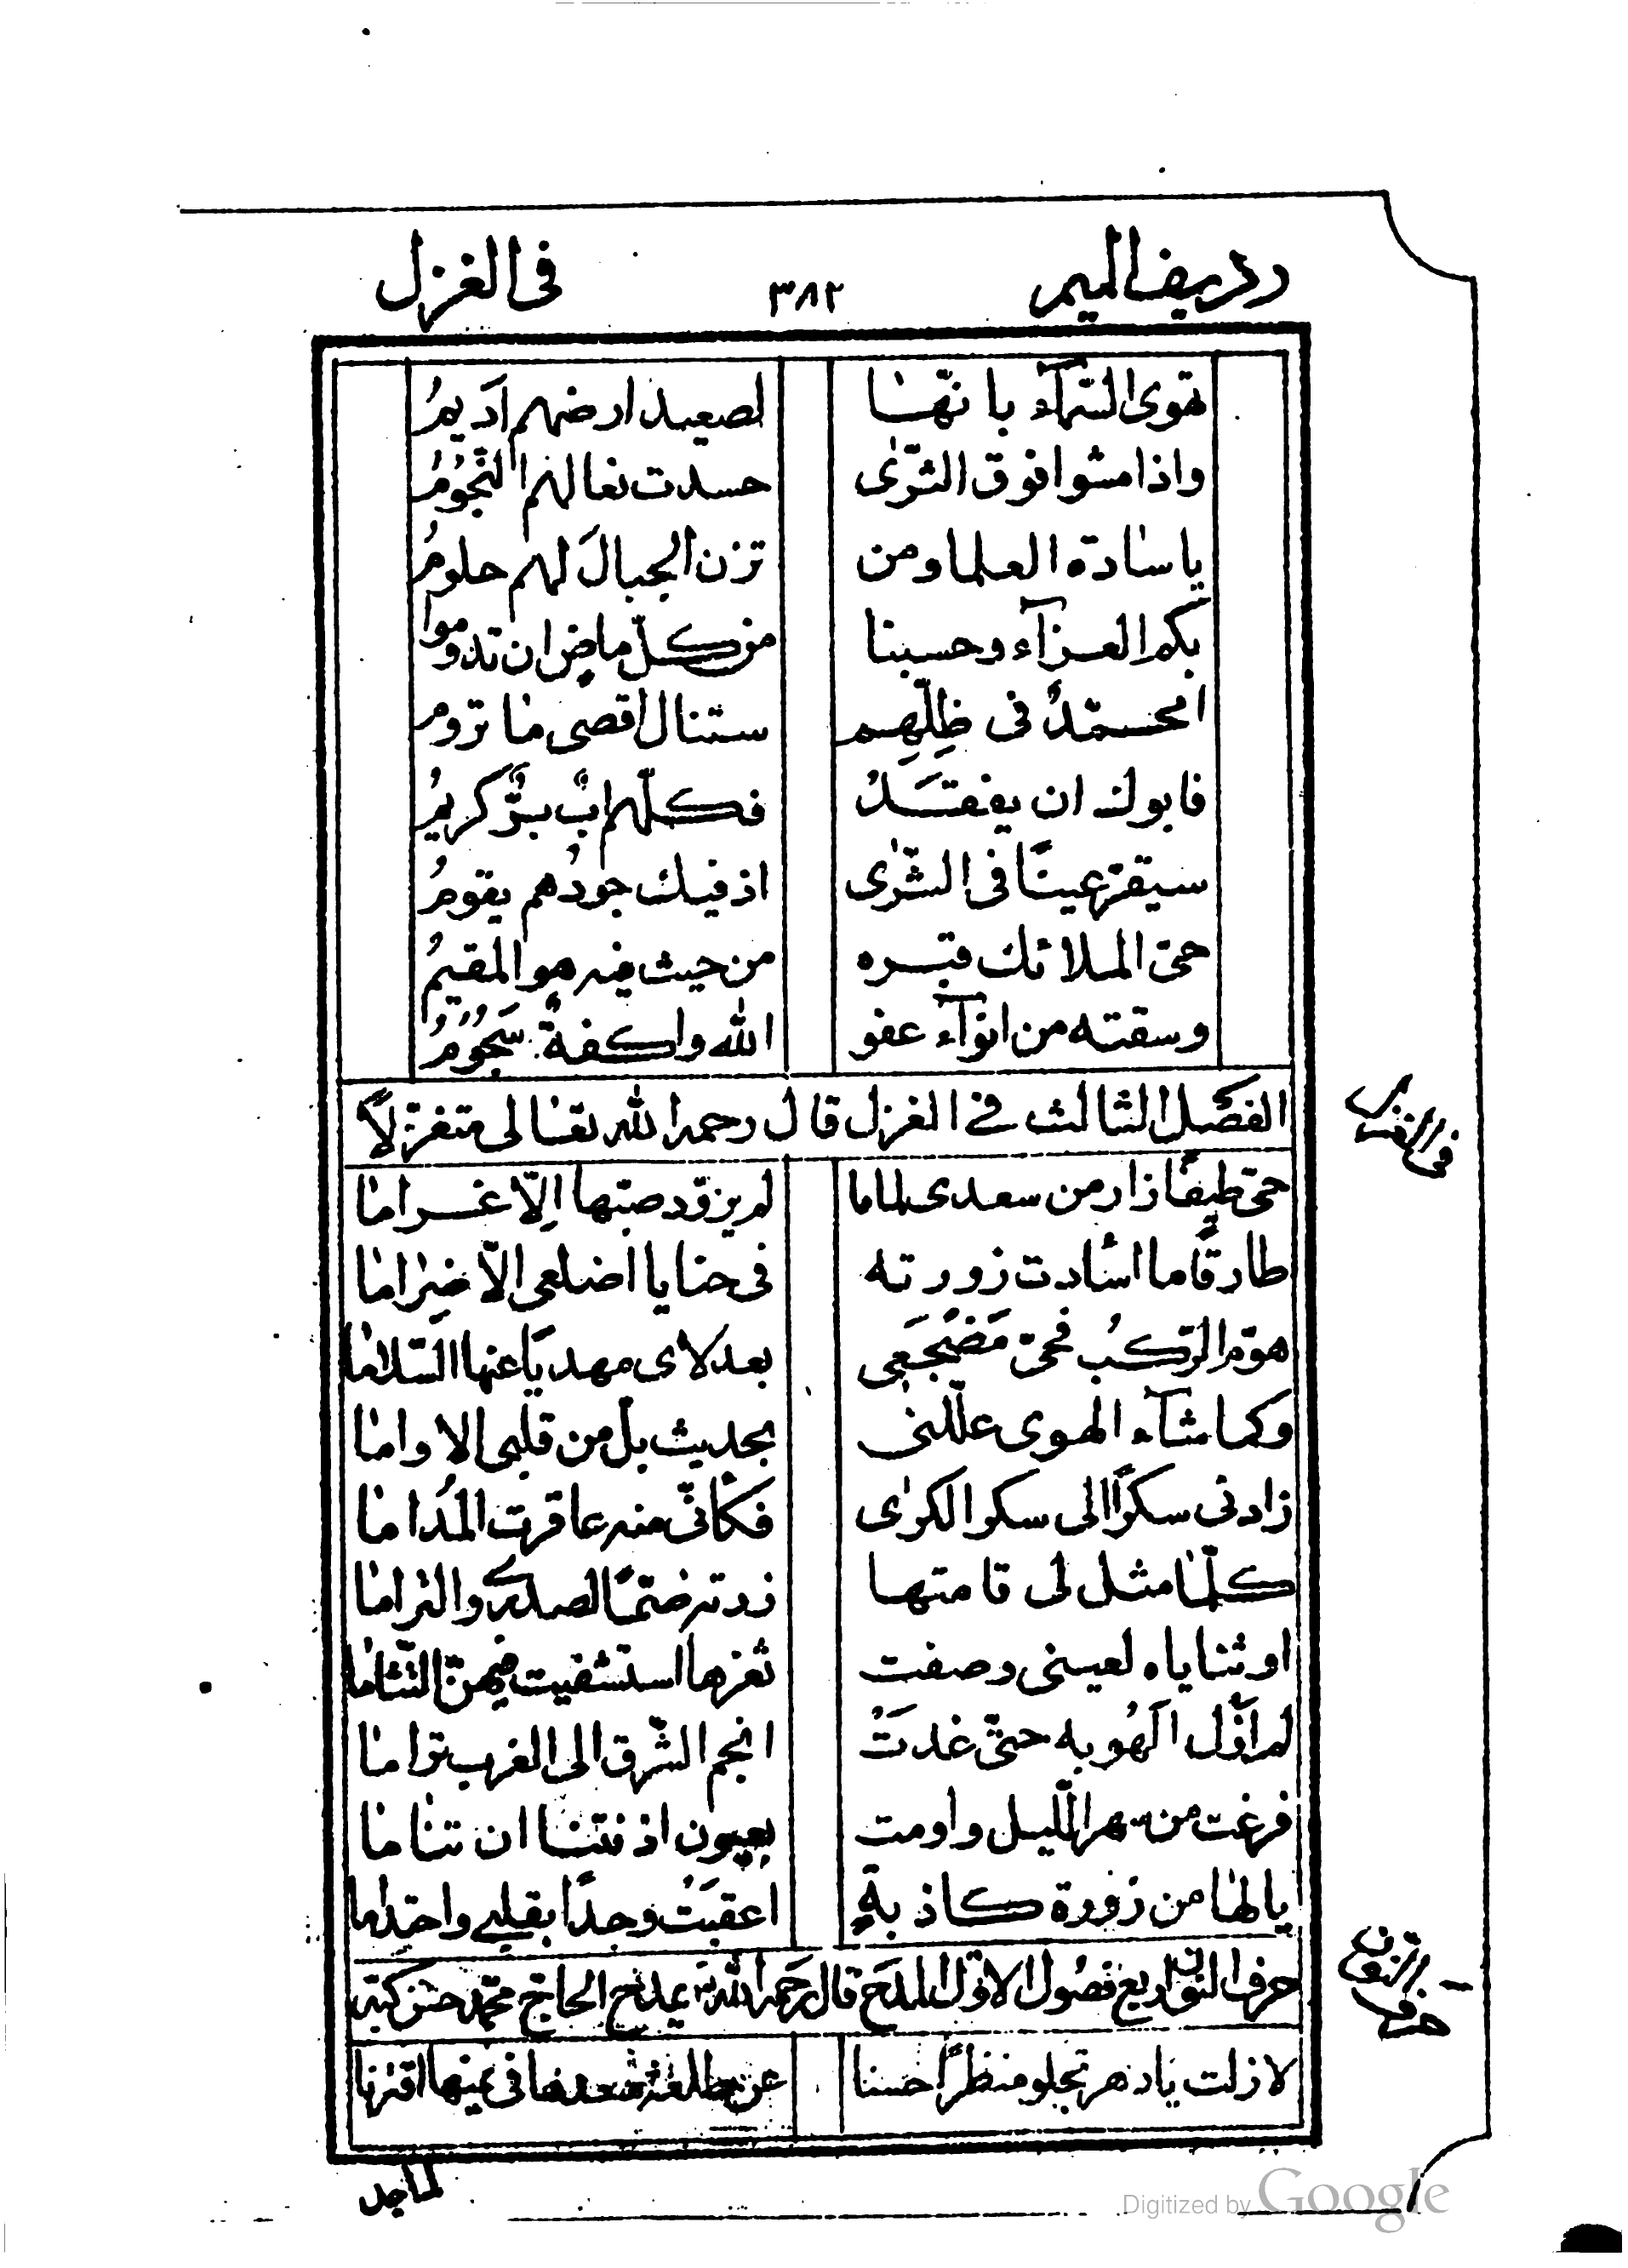 رديف الميم ٣٨٢ فى الغزل
تهوى السّمآء بانّها لصعيد ارضهم اَديمُ
واذا مشوا فوق الثّرٰى حسدت نعالهم النُّجُومُ
يا سادة العلما ومن تزن الجبالَ لهم حلومُ
بكم العزآء وحسبنا من كلّ ماضٍ ان تدوموا
امحمّدٌ فى ظِلِّهِم ستنال اقصى ما تروم
فابوك ان يفتقَدُ فكلّهم ابٌ برٌّ كريمُ
سيقرّ عينًا فى الثّرٰى اذ فيك جودُهم يقومُ
حىّ الملائك قبره من حيث فيه هو المقيمُ
وسقته من انوآء عفو الله واكفةٌ سَجُومُ
الفصل الثالث فى الغزل قال رحمه الله تعالى متغزّلاً
فى الغزل
حىّ طيفًا زار من سعدى لماما لم يزوّد صبّها اِلّا غراما
طارقًا ما اسأدت زورته فى حنايا اضلعى الّا ضِراما
هوّم الرّكبُ فحىّ مَضجَعِى بعد لاى مهديًا عنها السّلاما
وكما شآء الهوى علّلنى بحديث بلّ من قلبى الاواما
زادنى سكرًا الى سكر الكرٰى فكأنّى منه عاقرت المُداما
كلّما مثل لى قامتها زدته ضمًّا لصدرى والتزاما
او ثناياه لعينى وصفت ثغرها استشفيت فيهنّ التثاما
لم اَزَل اَلهُو به حتّى غدَتُ انجم الشّرق الى الغرب تراما
فرغت من سهر اللّيل واومت بعيون اذنتنا ان تناما
يا لها من زورة كاذبةٍ اعقبَتْ وجدًا بقلبى واحتداما
حرف النون اربع فصُول الاوّل المدح قال رحمه الله يمدح الحاج محمّد حسن كبّه
حرف النون
لازلت يا دهر تجلو منظرًا حسنا عن طلعة سعدها فى يمنها اقترنا
لماجد
Digitized by Google